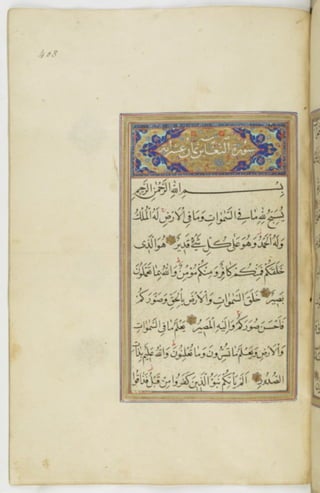 403
سورة التغابن ثمان عشر آية
بسم الله الرحمن الرحيم
يسبح لله ما في السموات وما في الارض له الملك
وله الحمد وهو على كل شئ قدير هو الذى
خلقكم فمنكم كافر ومنكم مؤمن والله بما تعملون
بصير خلق السموات والارض بالحق وصوركم
فاحسن صوركم واليه المصير يعلم ما فى السموات
والارض ويعلم ما تسرون وما تعلنون والله عليم بذات
الصدور الم يأتكم نبؤ الذين كفروا من قبل فذاقوا